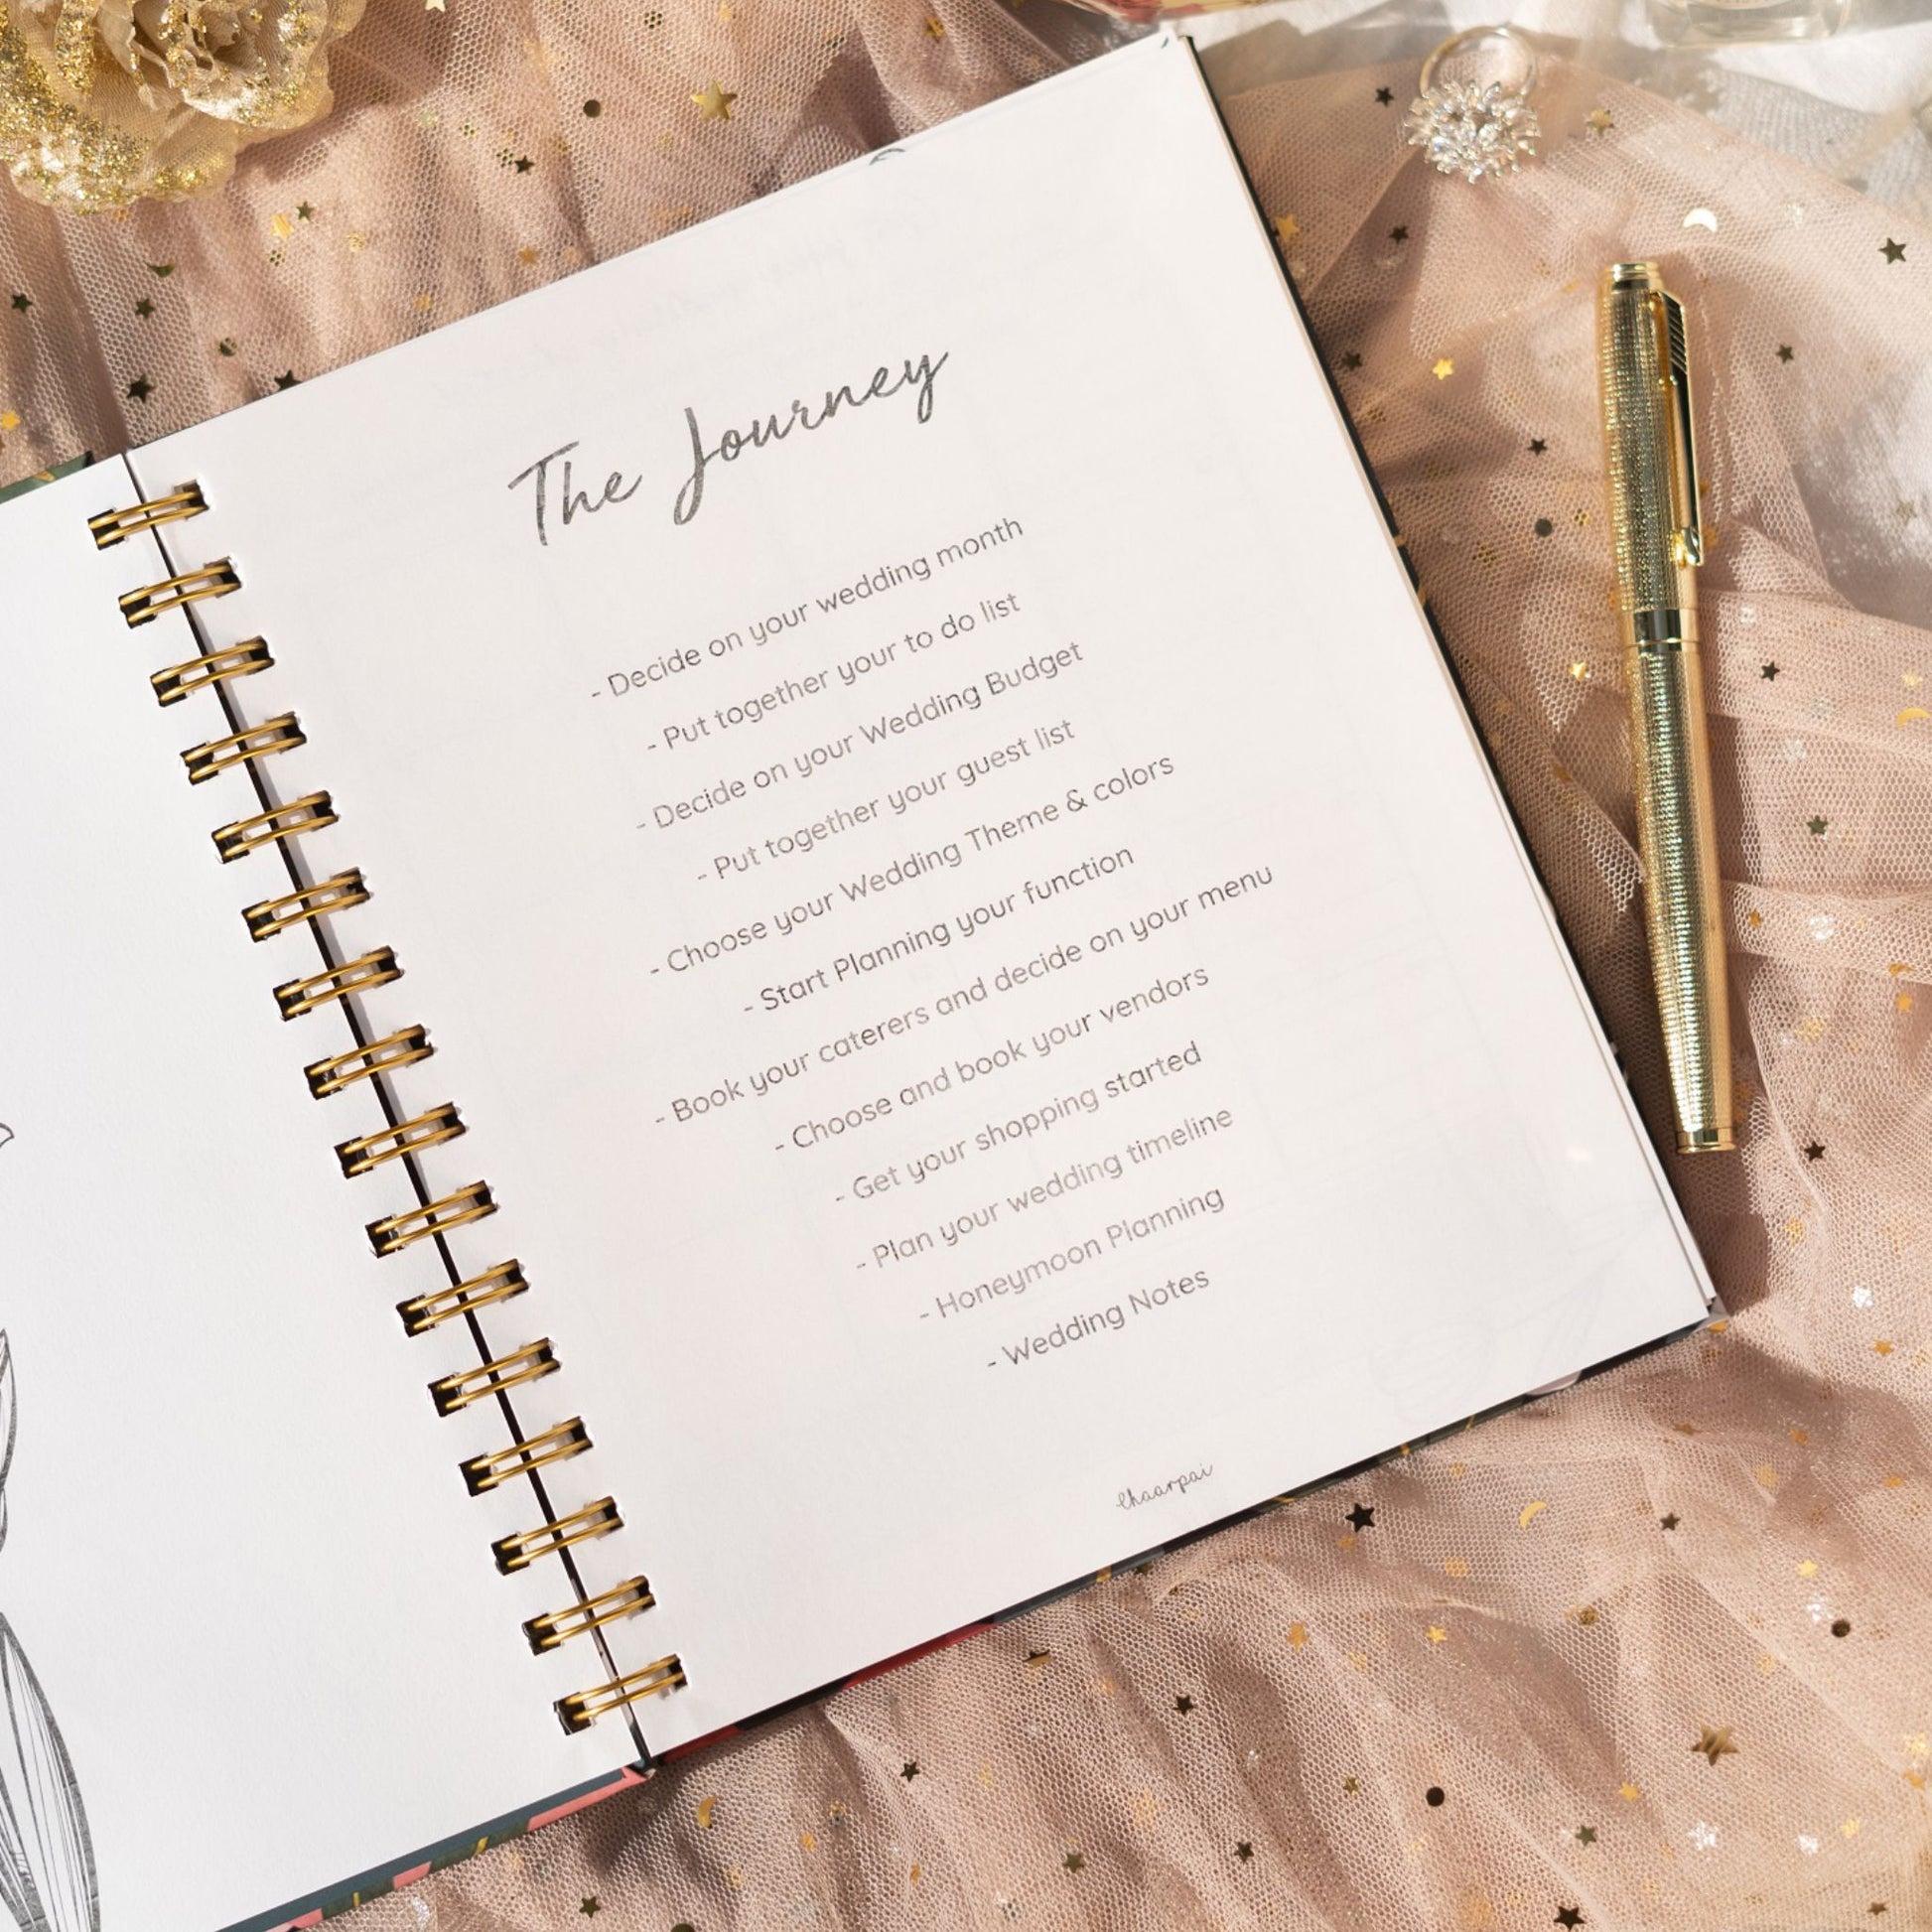 The Journey
- Decide on your wedding month
- Put together your to do list
- Decide on your Wedding Budget
- Put together your guest list
- Choose your Wedding Theme & colors
- Start Planning your function
- Book your caterers and decide on your menu
- Choose and book your vendors
- Get your shopping started
- Plan your wedding timeline
- Honeymoon Planning
- Wedding Notes
Chaarpai